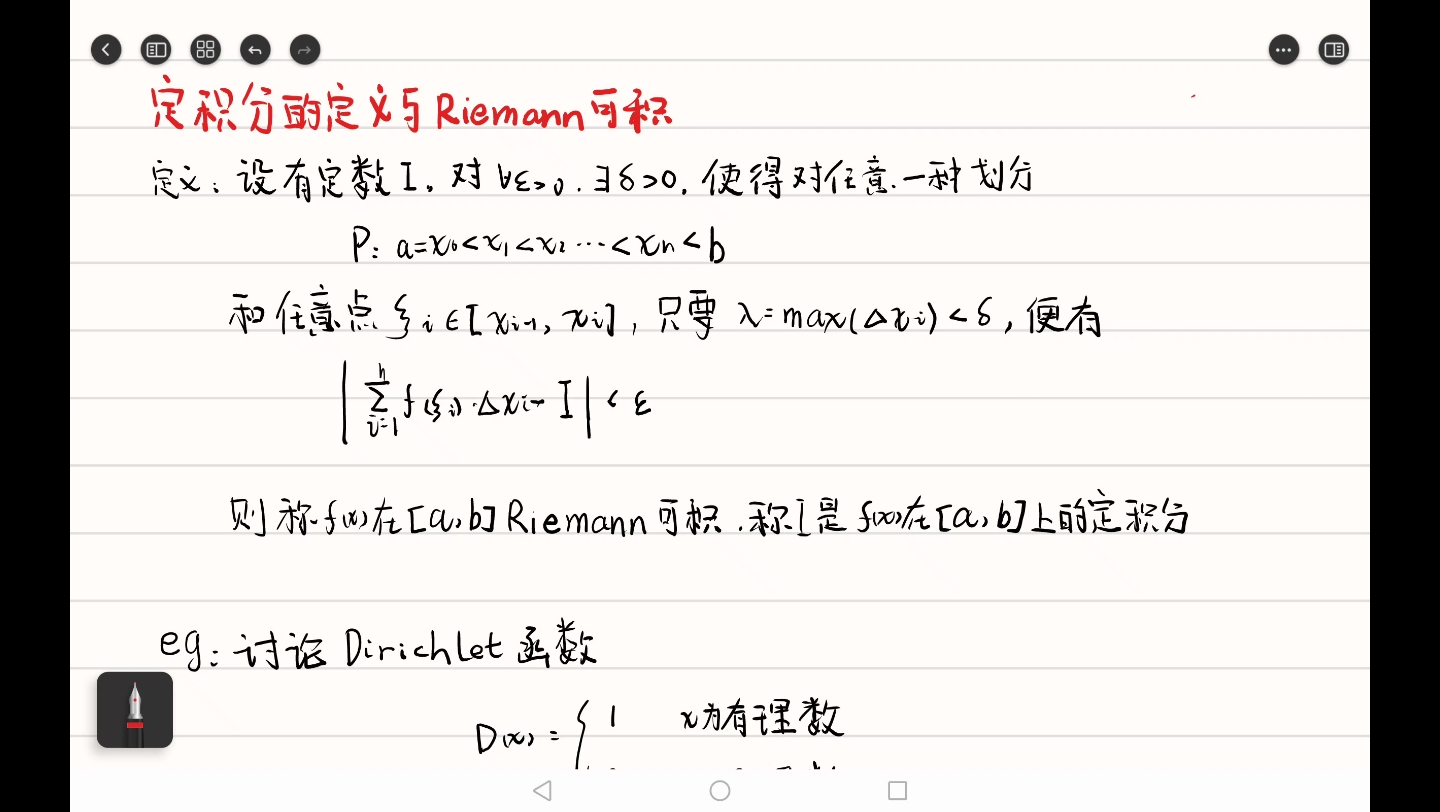 定积分的定义与Riemann可积
定义：设有定数I，对∀ε>0．∃δ>0，使得对任意一种划分
P: a=x₀<x₁<x₂…<xₙ<b
和任意点ξᵢ∈[xᵢ₋₁, xᵢ]，只要 λ=max(Δxᵢ)<δ，便有
|∑ⁿᵢ₌₁ f(ξᵢ)·Δxᵢ- I| < ε
则称f(x)在[a,b]Riemann可积．称I是f(x)在[a,b]上的定积分
eg: 讨论Dirichlet函数
D(x) = { 1 x为有理数